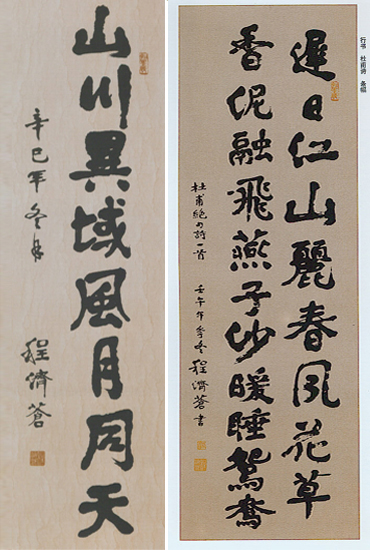 山川異域風月同天
辛巳年冬月
程濟蒼
行书 杜甫诗 条幅
遲日江山麗春风花草
香泥融飛燕子沙暖睡鴛鴦
杜甫絕句詩一首 壬午年季冬 程濟蒼書